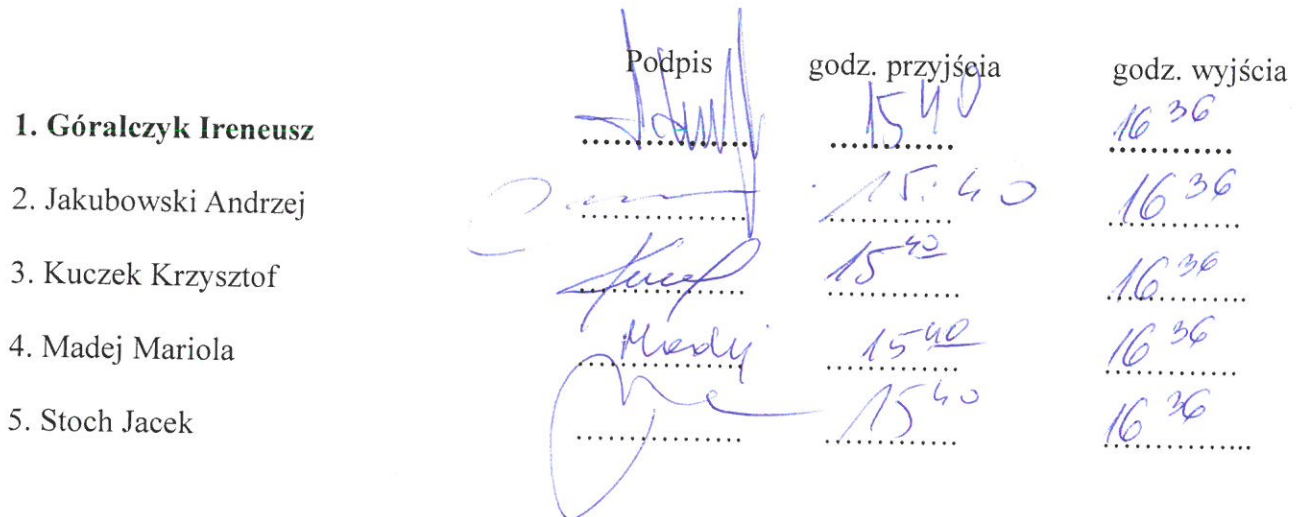 Podpis godz. przyjścia godz. wyjścia
1. Góralczyk Ireneusz 15 40 16 36
2. Jakubowski Andrzej 15:40 16 36
3. Kuczek Krzysztof 15 40 16 36
4. Madej Mariola Madej 15 40 16 36
5. Stoch Jacek 15 40 16 36